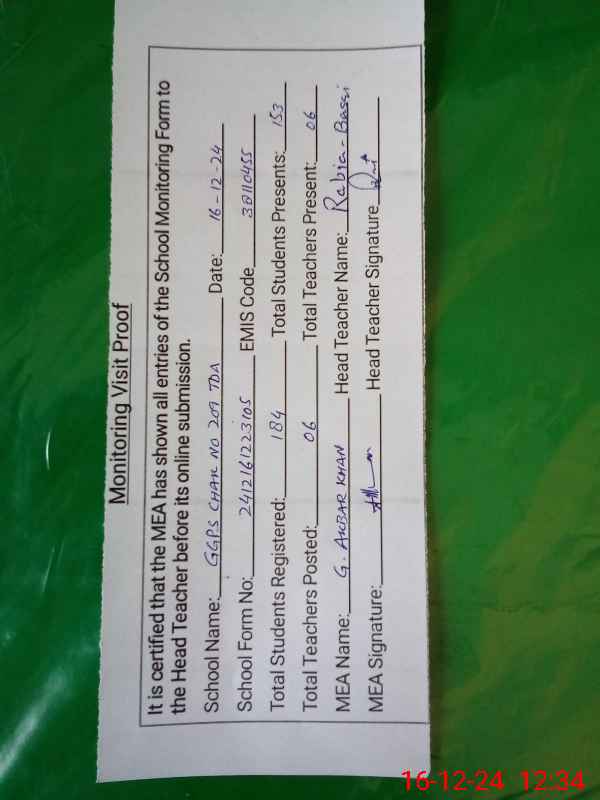 Monitoring Visit Proof
It is certified that the MEA has shown all entries of the School Monitoring Form to
the Head Teacher before its online submission.
School Name: GGPS CHAK NO 209 TDA Date: 16-12-24
School Form No: 2412161223105 EMIS Code 38110455
Total Students Registered: 184 Total Students Presents: 153
Total Teachers Posted: 06 Total Teachers Present: 06
MEA Name: G. AKBAR KHAN Head Teacher Name: Rabia-Bassi
MEA Signature: Head Teacher Signature
16-12-24 12:34